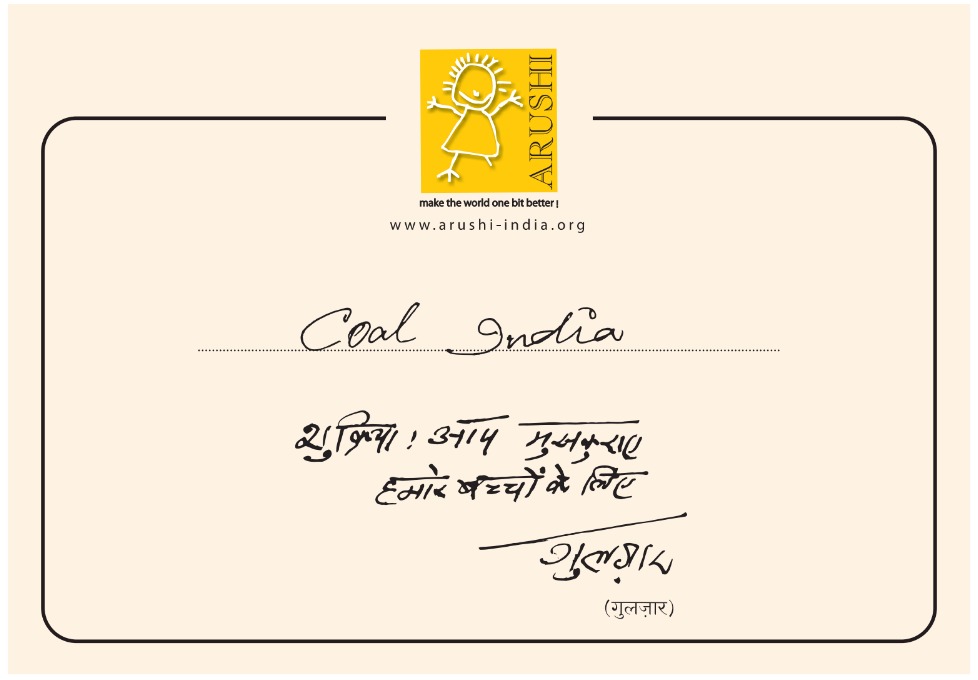 ARUSHI
make the world one bit better!
www.arushi-india.org
Coal India
शुक्रिया! आप मुसकुराए
हमारे बच्चों के लिए
गुलज़ार
(गुलज़ार)